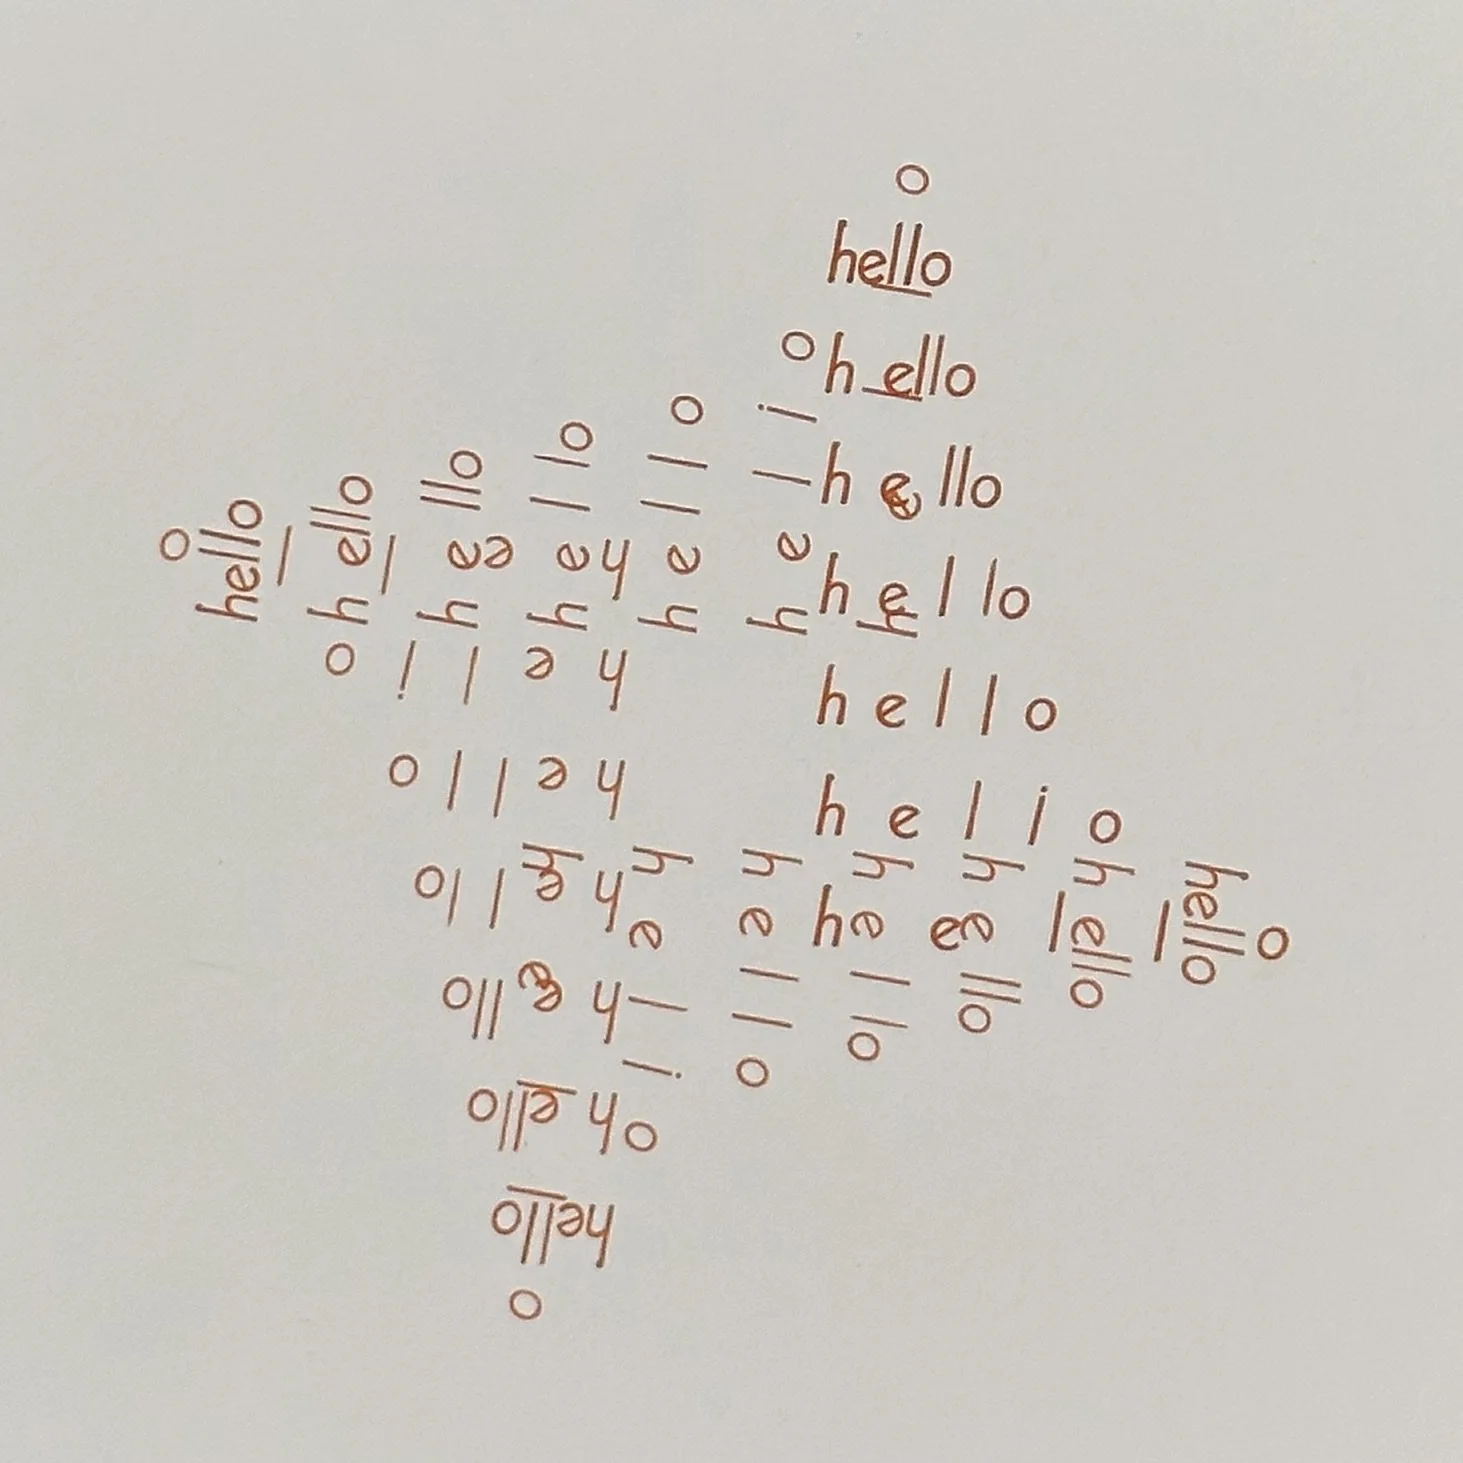 o
hello
oh ello
h e llo
h e l lo
h e l l o
h e l i o
o
hello
h ello
h e llo
h ey l lo
h e l l o
h e l i o
o
hello
oh ello
h e llo
h e l lo
h e l l o
h e l i o
o
hello
h ello
h e llo
h ey l lo
h e l l o
h e l i